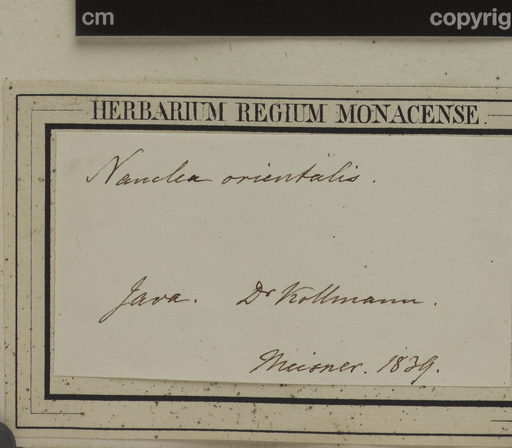 cm
copyrig
HERBARIUM REGIUM MONACENSE.
Nauclea orientalis.
Java. Dr Kollmann.
Meisner. 1839.